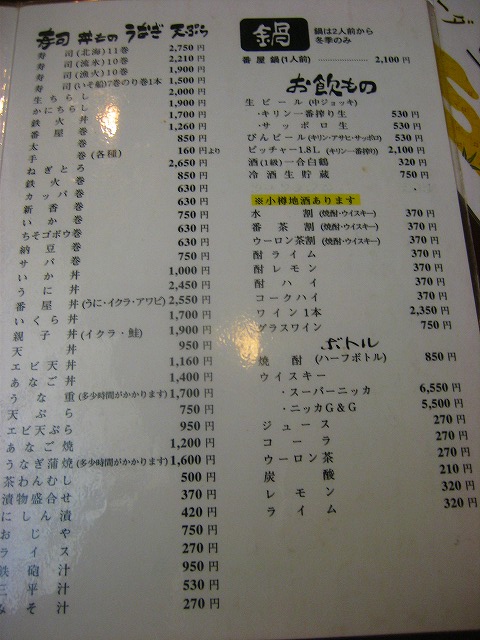 寿司 丼もの うなぎ 天ぷら
寿司(北海)11巻 2,750円
寿司(流氷)10巻 2,210円
寿司(漁火)10巻 1,900円
寿司(いそ船)7巻のり巻1本 1,500円
生ちらし 2,000円
かにちらし 1,900円
鉄火丼 1,700円
番屋巻 1,260円
太巻 850円
手巻(各種) 160円より
ねぎとろ 2,650円
鉄火巻 850円
カッパ巻 630円
新香巻 630円
いか巻 750円
ちそゴボウ巻 630円
納豆巻 630円
サバ巻 750円
いか丼 1,000円
うに丼 2,450円
番屋丼(うに・イクラ・アワビ) 2,550円
いくら丼 1,700円
親子丼(イクラ・鮭) 1,900円
天丼 950円
エビ天丼 1,160円
あなご丼 1,400円
うな重(多少時間がかかります) 1,700円
天ぷら 750円
エビ天ぷら 950円
あなご焼 1,200円
うなぎ蒲焼(多少時間がかかります) 1,600円
茶わんむし 500円
漬物盛合せ 370円
にしん漬 420円
おじや 750円
ライス 270円
鉄砲汁 950円
三平汁 530円
みそ汁 270円
鍋 鍋は2人前から
冬季のみ
番屋鍋(1人前) 2,100円
お飲もの
生ビール(中ジョッキ)
・キリン一番搾り生 530円
・サッポロ生 530円
びんビール(キリン・アサヒ・サッポロ) 530円
ピッチャー1.8L(キリン一番搾り) 2,100円
酒(1級)一合白鶴 320円
冷酒生貯蔵 750円
※小樽地酒あります
水割(焼酎・ウイスキー) 370円
番茶割(焼酎・ウイスキー) 370円
ウーロン茶割(焼酎・ウイスキー) 370円
酎ライム 370円
酎レモン 370円
酎ハイ 370円
コークハイ 370円
ワイン1本 2,350円
グラスワイン 750円
ボトル
焼酎(ハーフボトル) 850円
ウイスキー
・スーパーニッカ 6,550円
・ニッカG&G 5,500円
ジュース 270円
コーラ 270円
ウーロン茶 270円
炭酸 210円
レモン 320円
ライム 320円